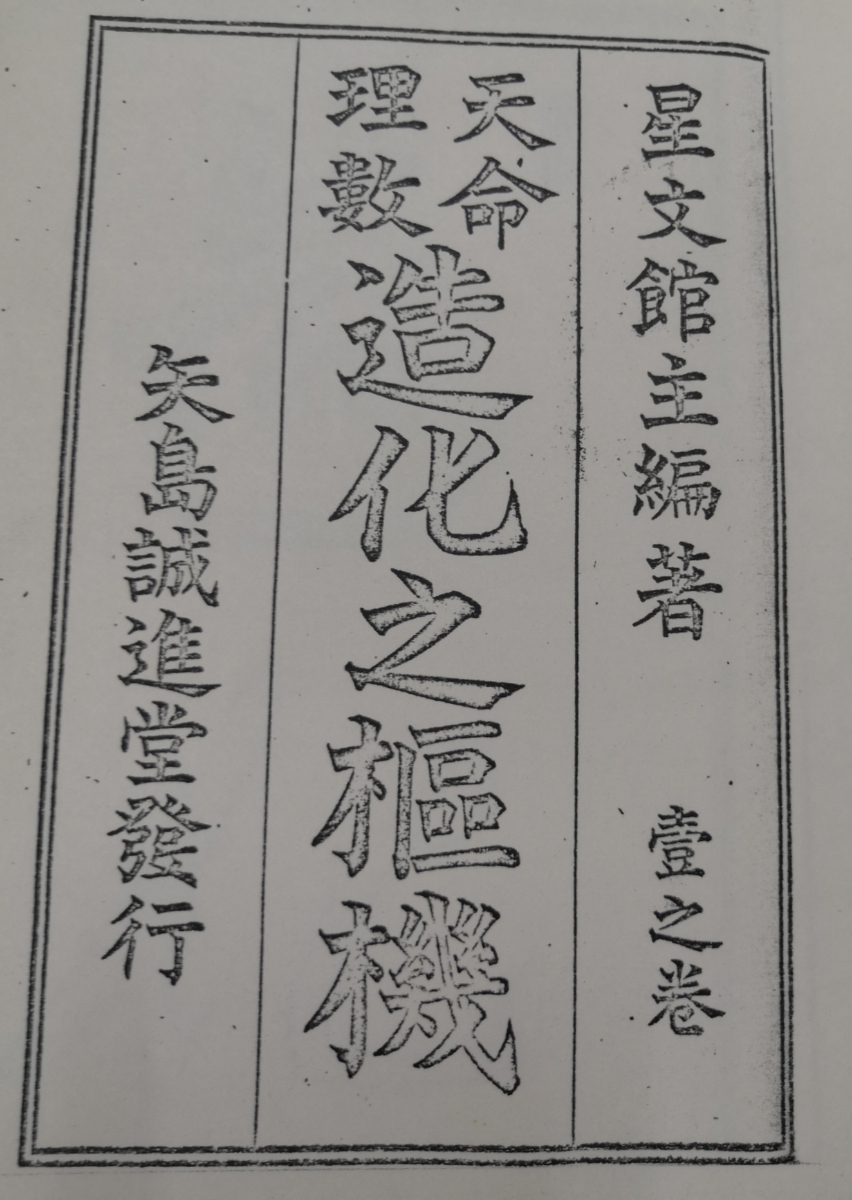 星文館主編著
壹之卷
天命
理數
造化之樞機
矢島誠進堂發行